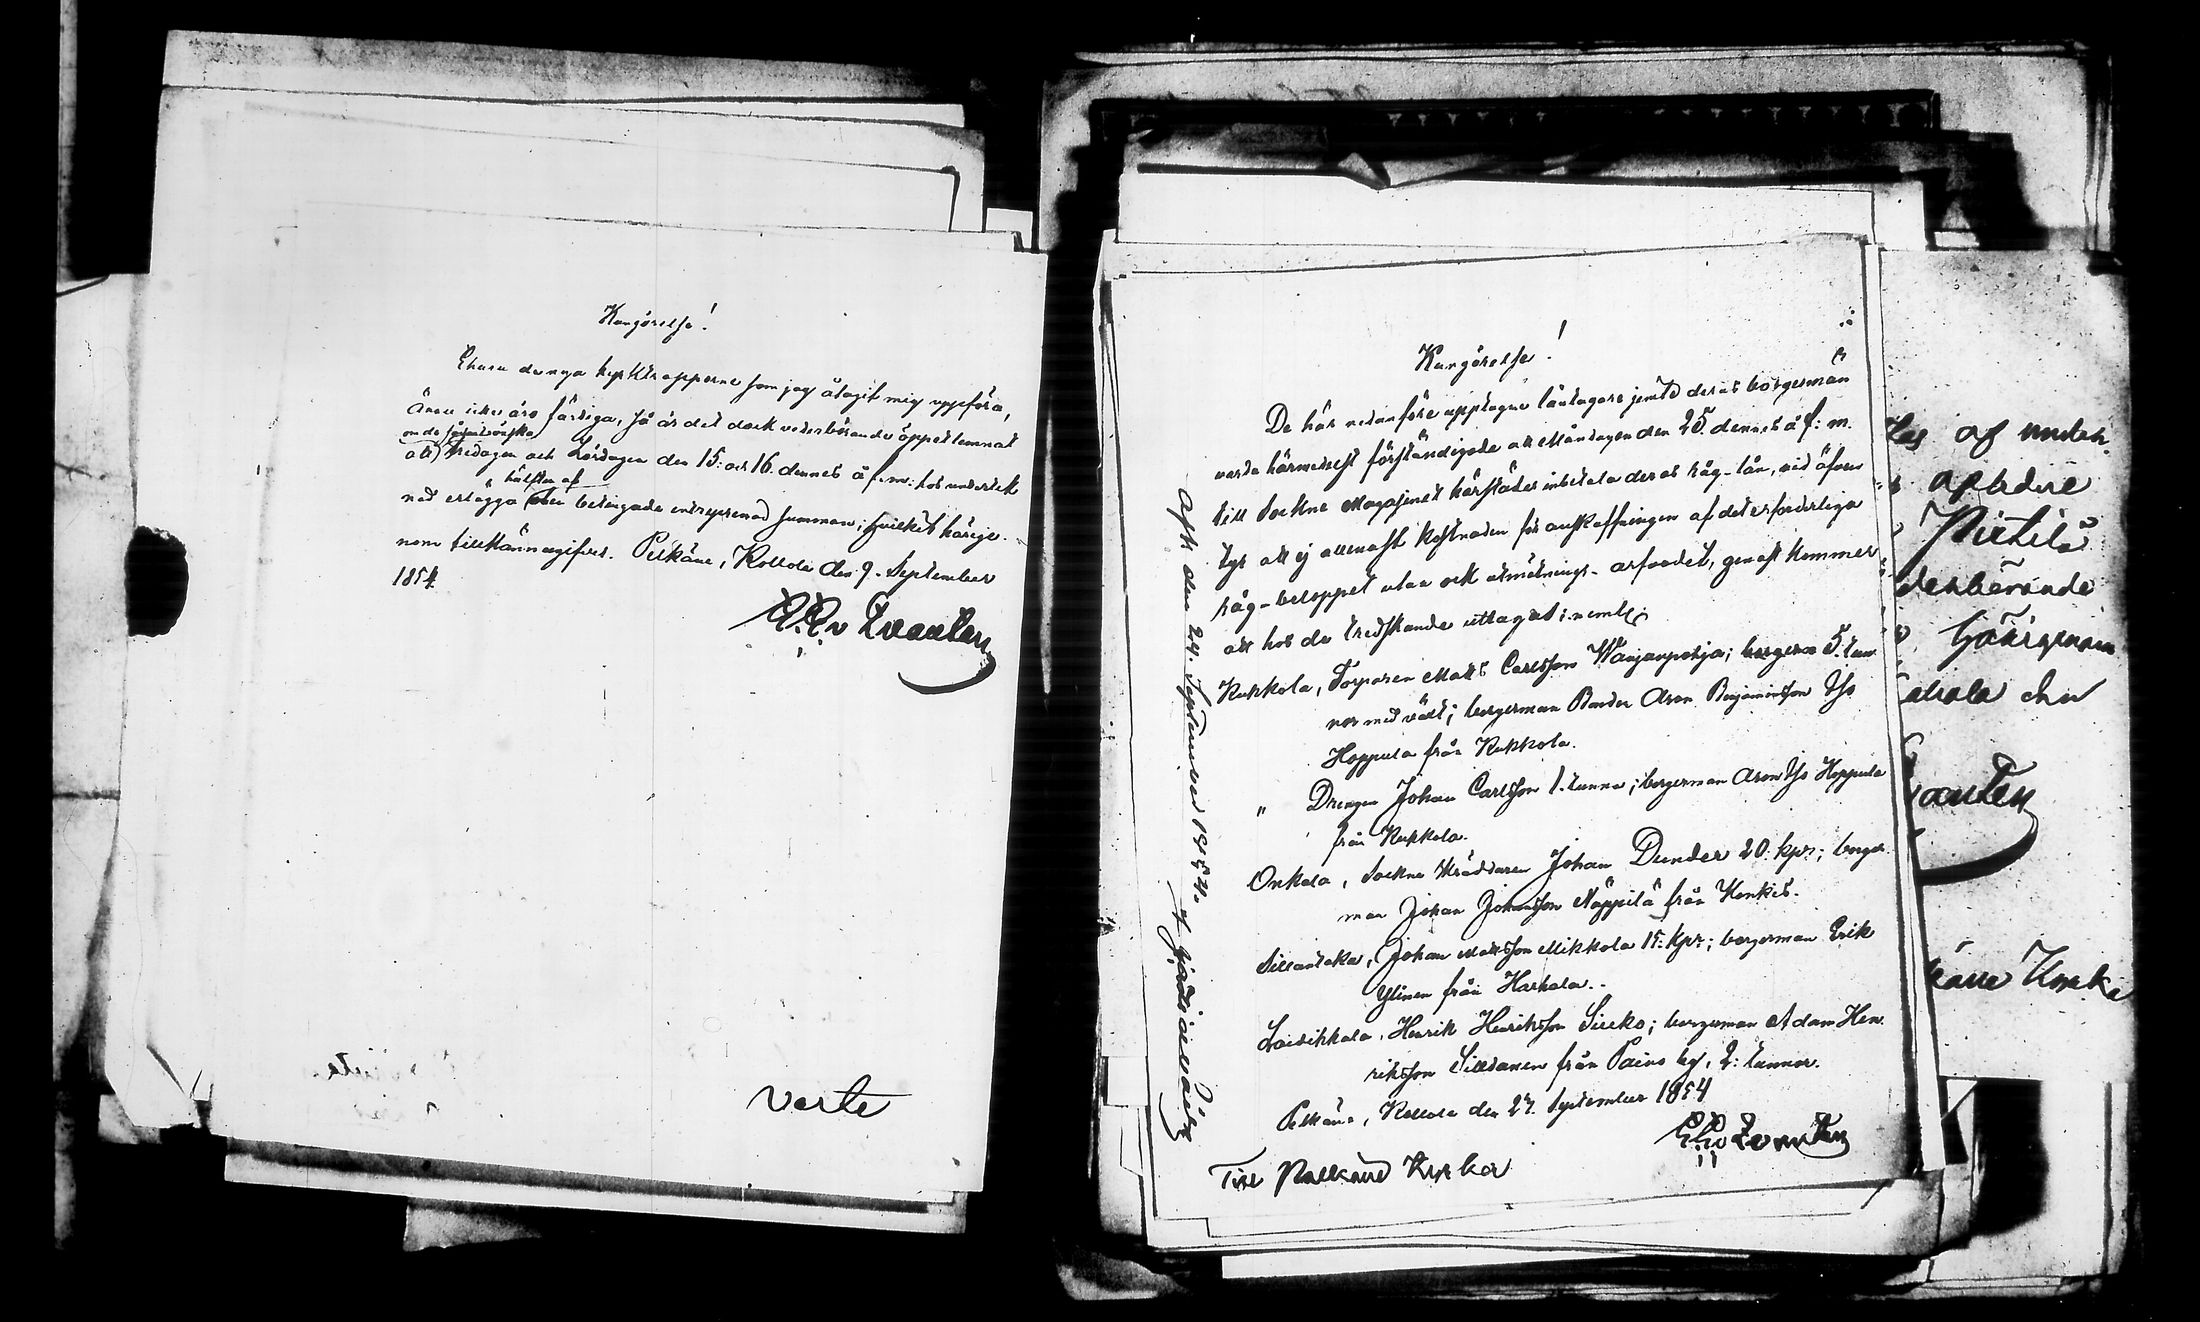 Kungörelse!
Ehuru de nya kyrktrapporne som jag åtagit mig uppföra,
ännu icke äro färdiga, så är det dock vederbörande öppet lemnat
om de så önska
att fredagen och Lördagen den 15: och 16. dennes å f. m: hos underteck
hälften af
nad erlägga den betingade entreprenad summan; hvilket härige-
nom tillkännagifves. Pelkäne, Kollola den 9. September
1854
v Qvanten
verte
Kungörelse!
De här nedanföre upptagne låntagare jemte deras borgesmän
varda härmedelst förständigade att Måndagen den 25. dennes å f: m.
till Sockne Magasinet härstädes inbetala deras råg-lån, vid äfven
tyr att ej allenast kostnaden för anskaffningen af det erforderliga
råg-beloppet utan ock utmätnings-arfvodet, genast kommer
att hos de tredskande uttagas; neml:
Kukkola, Torparen Matts Carlsson Wanjanpohja; 5. tun
nor med växt; borgesman Bonden Aron Benjaminsson
Hoppula från Kukkola.
" Drengen Johan Carlsson 1. tunna; borgesman Aron Hoppula
från Kukkola.
Onkala, Sockne Skräddaren Johan Dunder 20. kpr; borges
man Johan Johansson Näppilä från Konkis.
Sillantaka, Johan Mattsson Mikkola 15. kpr; borgesman Erik
Ylinen från Harhala.
Laitikkala, Henrik Henriksson Sireko; borgesman Adam Hen
riksson Silldanen från Paino by, 2: tunnor.
Pelkäne, Kollola den 27. September 1854
v Qvanten
Till Pälkäne Kyrka
den 24. September 1854.
af under
Pietilä
derbörande
härigenom
den
anten
käne Kyrka